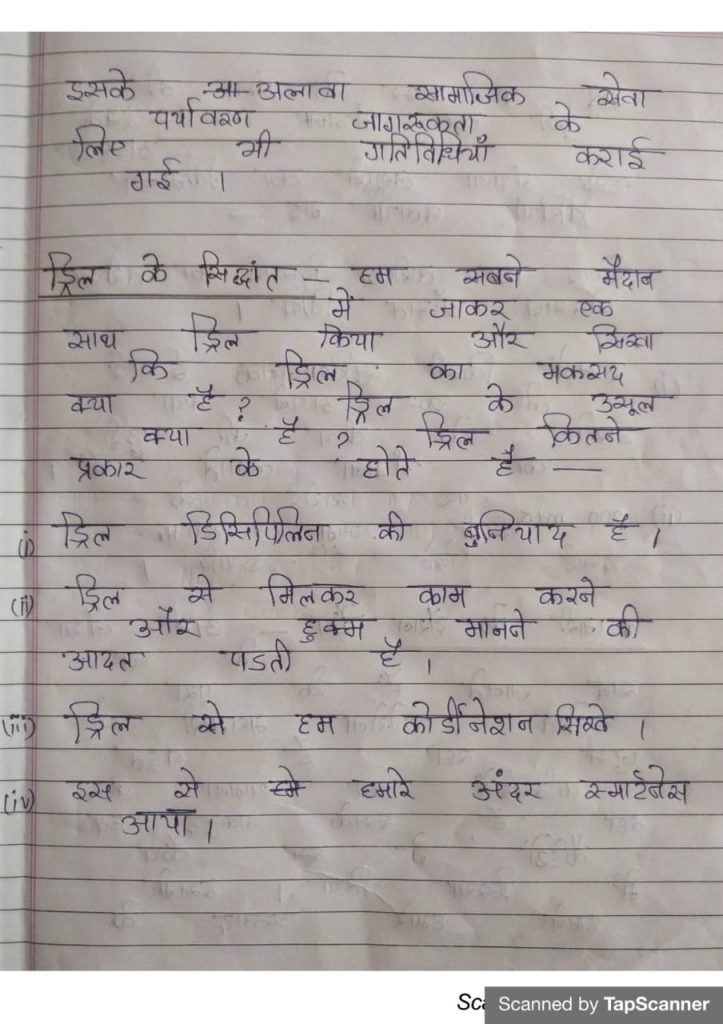 इसके आ अलावा सामाजिक सेवा
पर्यावरण जागरूकता के
लिए भी गतिविधियाँ कराई
गई ।
ड्रिल के सिद्धांत — हम सबने मैदान
में जाकर एक
साथ ड्रिल किया और सिखा
कि ड्रिल का मकसद
क्या है? ड्रिल के उसूल
क्या है ? ड्रिल कितने
प्रकार के होते है —
(i) ड्रिल डिसिपिलिन की बुनियाद है ।
(ii) ड्रिल से मिलकर काम करने
और हुक्म मानने की
आदत पडती है ।
(iii) ड्रिल से हम कोर्डीनेशन सिखे ।
(iv) इस से हमे हमारे अंदर स्मार्टनेस
आया ।
Scanned by TapScanner